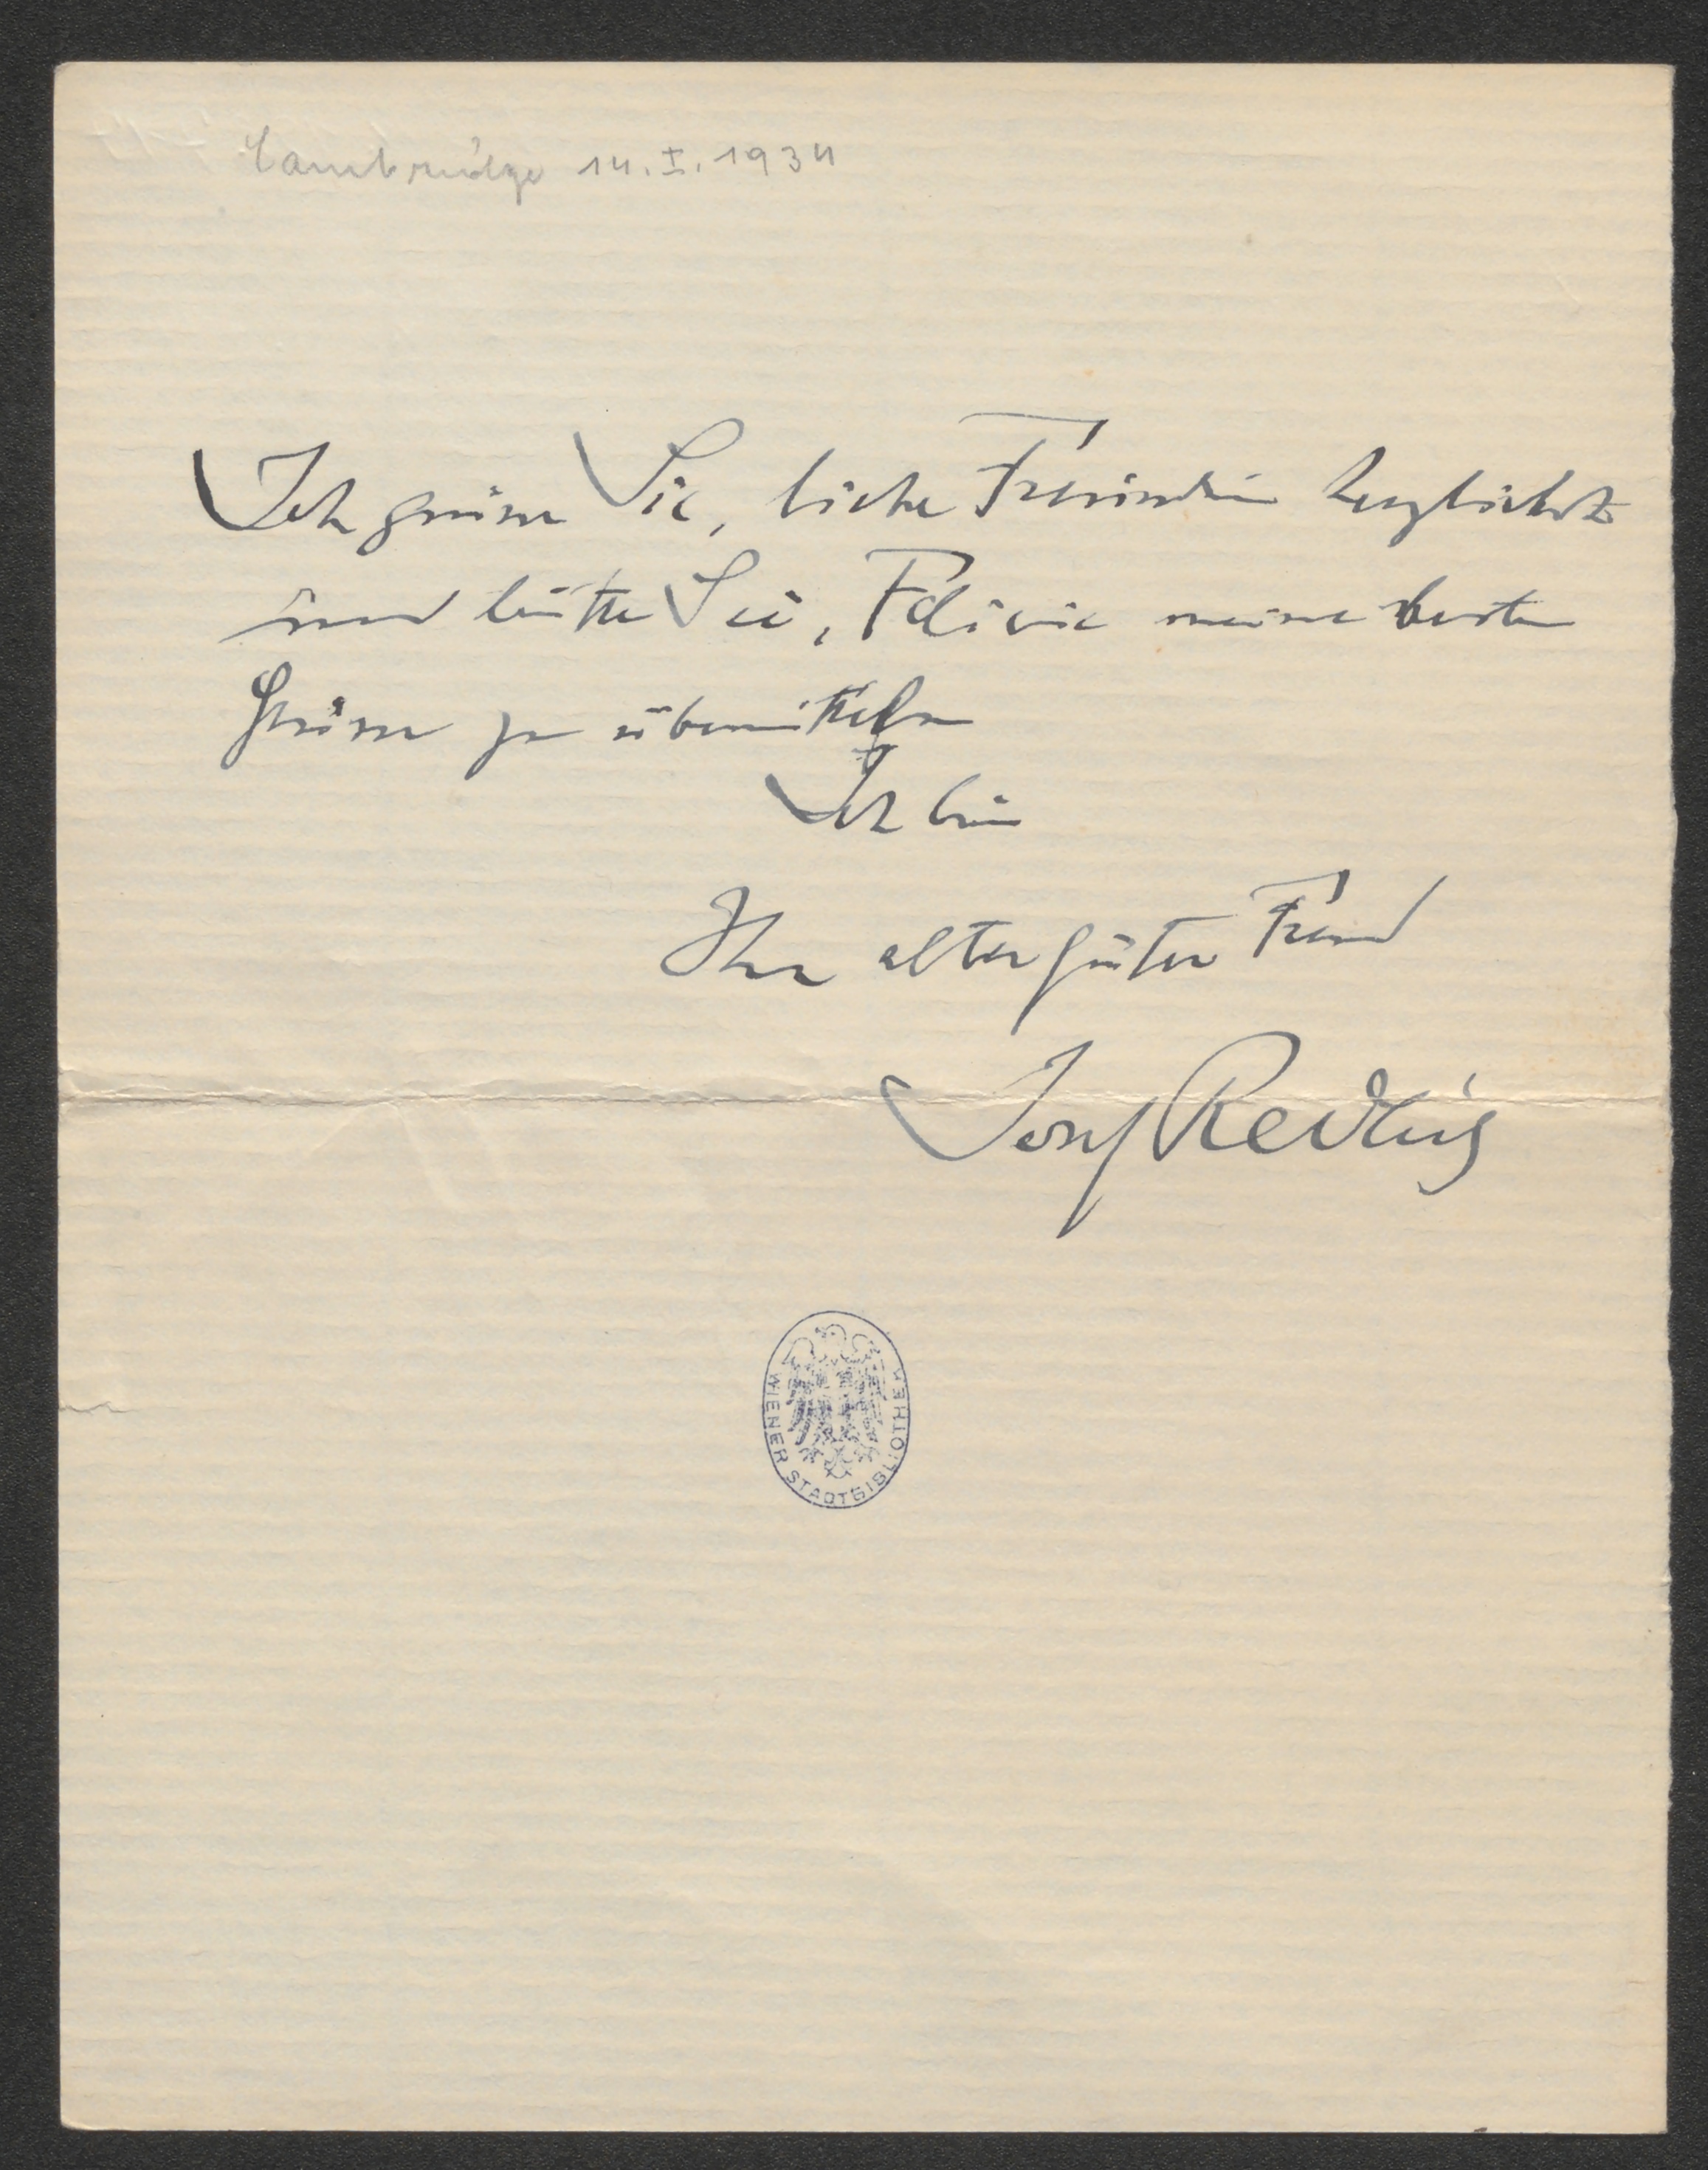 Cambridge 14. I. 1934
Ich grüsse Sie, liebe Freundin herzlichst
und bitte Sie, Felicie meine besten
Grüsse zu übermitteln
Ich bin
Ihr alter guter Freund
Josef Redlich
WIENER STADTBIBLIOTHEK